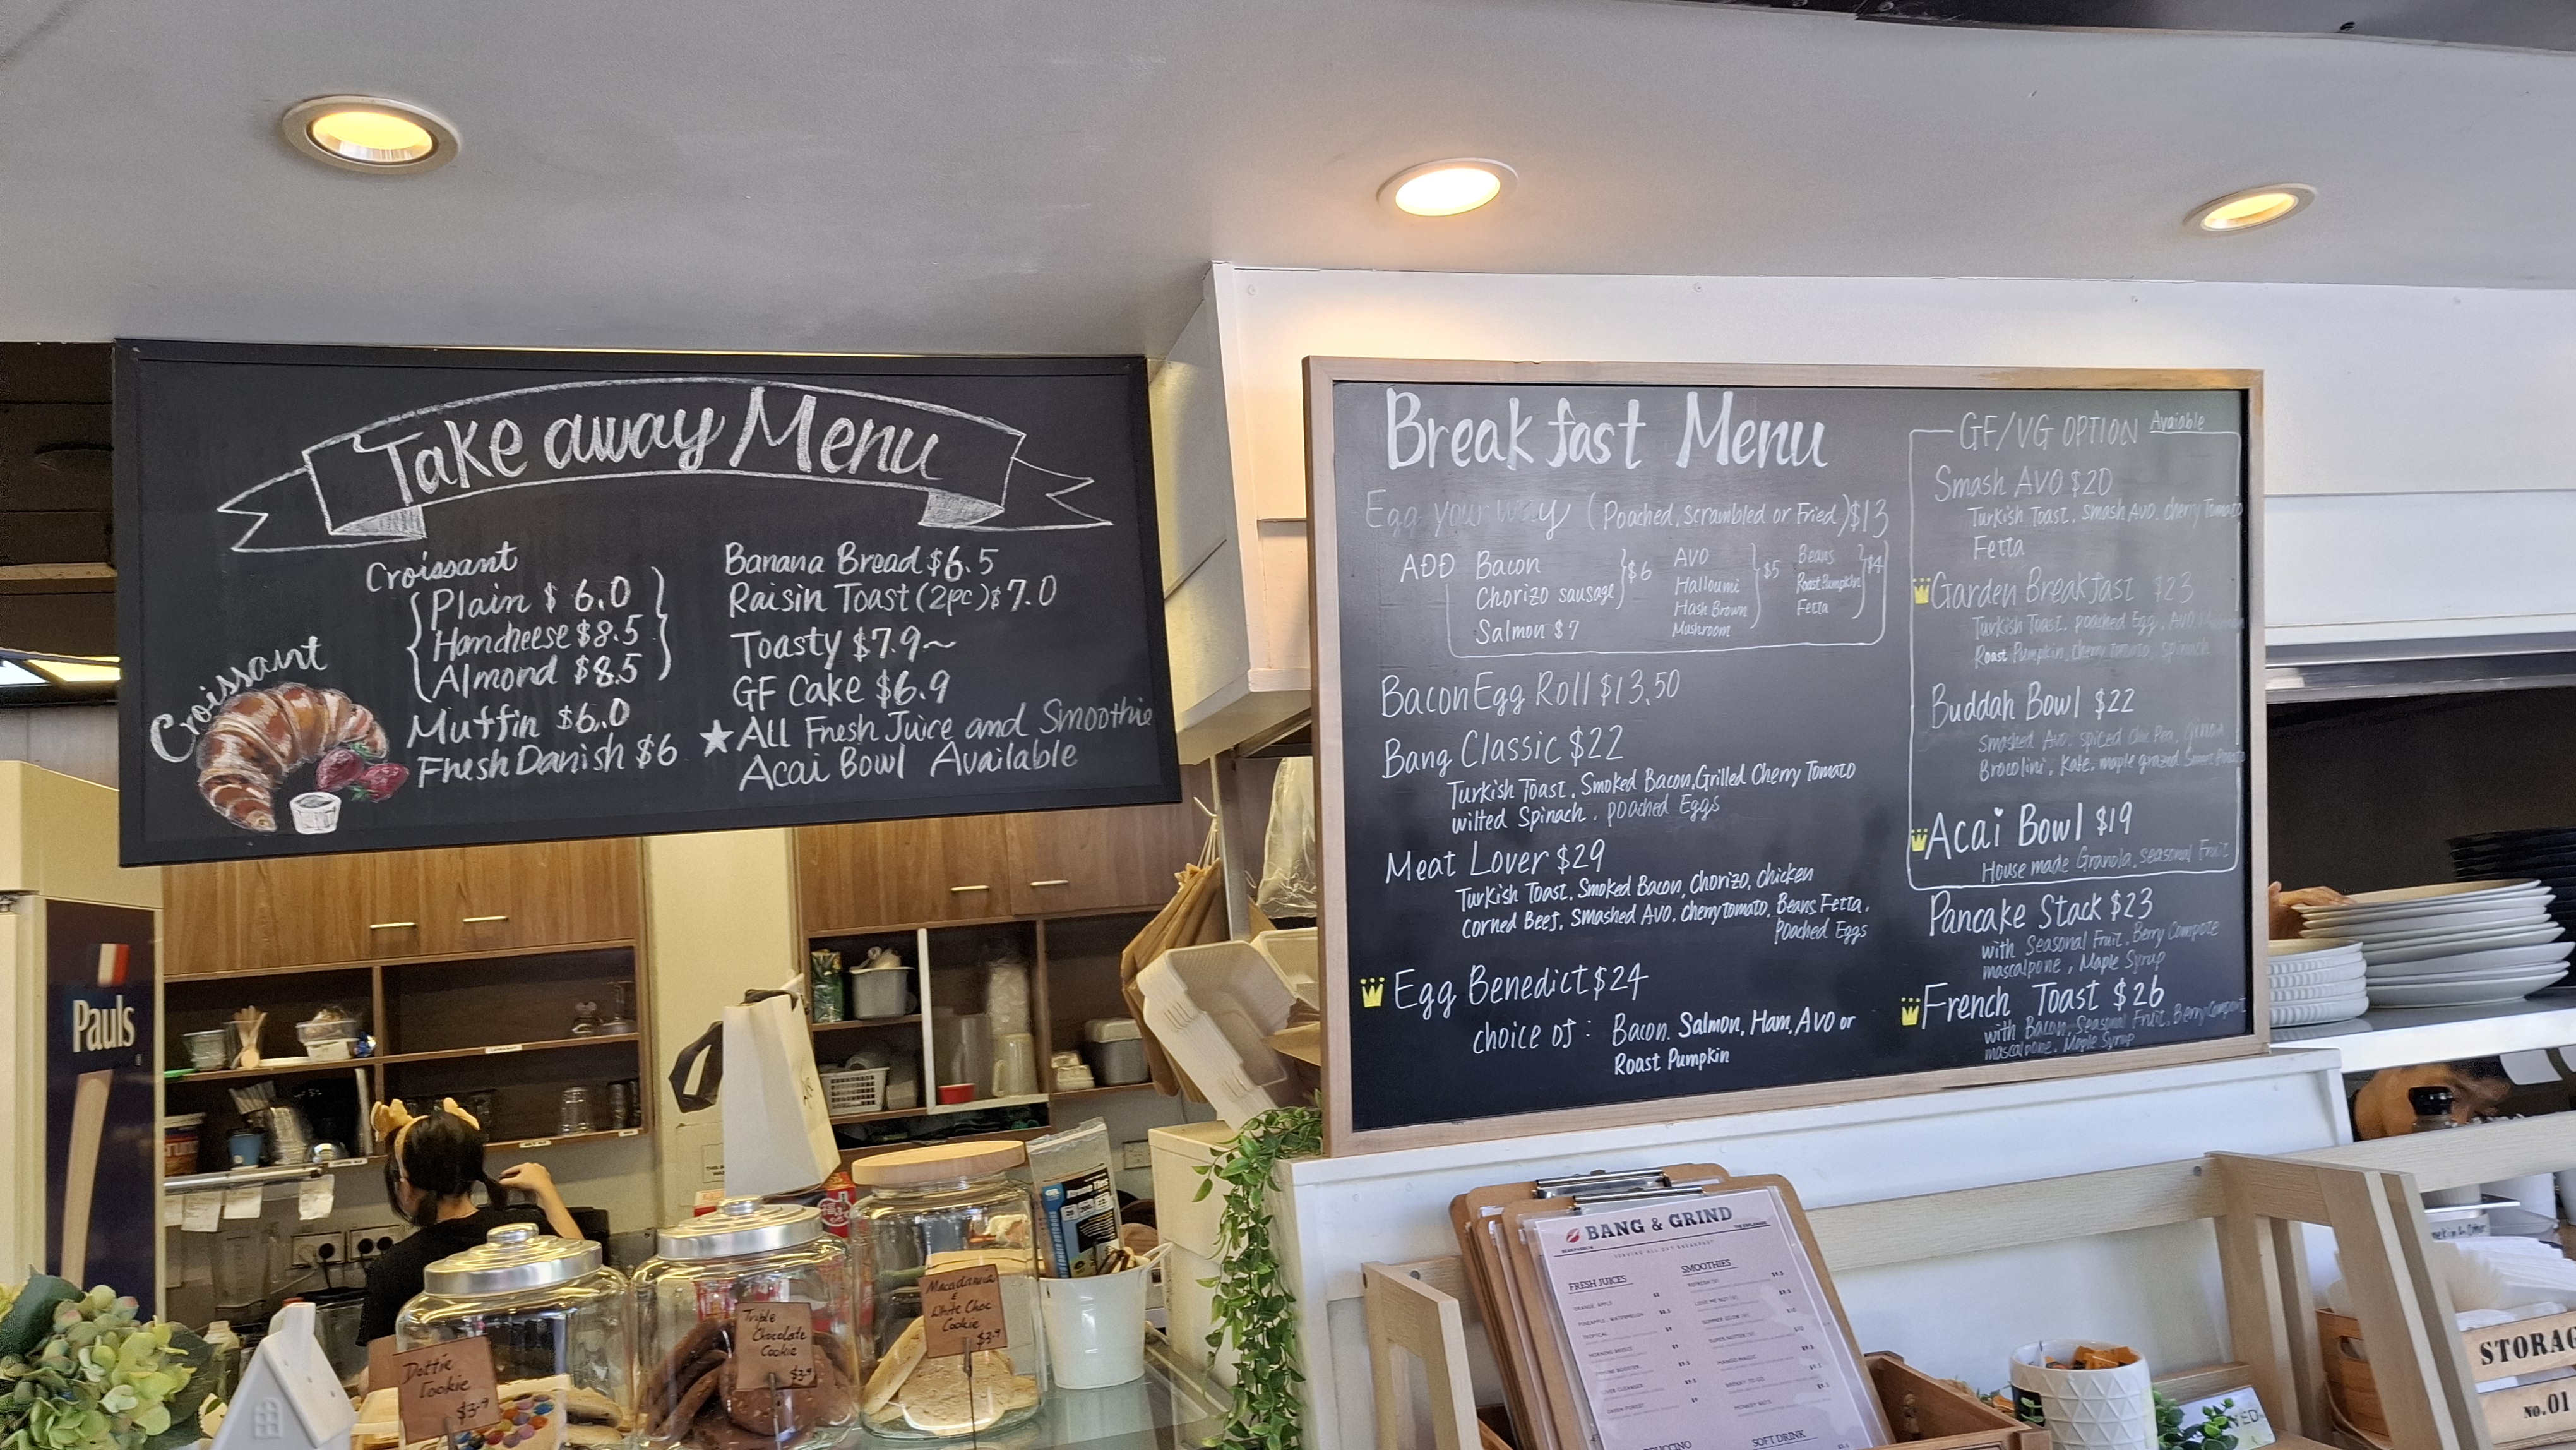 Take away Menu
Croissant
Plain $ 6.0
Hamcheese $8.5
Almond $8.5
Muffin $6.0
Fresh Danish $6
Croissant
Banana Bread $6.5
Raisin Toast (2pc) $7.0
Toasty $7.9~
GF Cake $6.9
★All Fresh Juice and Smoothie
Acai Bowl Available
Breakfast Menu
Egg your way (Poached, Scrambled or Fried) $13
ADD
Bacon
Chorizo sausage
$6
Salmon $7
AVO
Halloumi
Hash Brown
Mushroom
$5
Beans
Roast Pumpkin
Fetta
$4
Bacon Egg Roll $13.50
Bang Classic $22
Turkish Toast, Smoked Bacon, Grilled Cherry Tomato
wilted Spinach, poached Eggs
Meat Lover $29
Turkish Toast, Smoked Bacon, Chorizo, chicken
corned Beef, Smashed AVO, cherry tomato, Beans, Fetta,
Poached Eggs
Egg Benedict $24
choice of : Bacon, Salmon, Ham, AVO or
Roast Pumpkin
GF/VG OPTION Avaiable
Smash AVO $20
Turkish Toast, Smash AVO, cherry Tomato
Fetta
Garden Breakfast $23
Turkish Toast, poached Egg, AVO,
Roast Pumpkin, cherry tomato, spinach
Buddah Bowl $22
Smashed Avo, spiced Chic Pea,
Brocolini, Kale, maple grazed Sweet Potato
Acai Bowl $19
House made Granola, seasonal Fruit
Pancake Stack $23
with Seasonal Fruit, Berry Compote
mascalpone, Maple Syrup
French Toast $26
with Bacon, Seasonal Fruit, Berry Compout
mascalpone, Maple Syrup
Pauls
Dottie
Cookie
$3.9
Triple
Chocolate
Cookie
$3.9
Macadamia
&
White Choc
Cookie
$3.9
BANG & GRIND
SERVING ALL DAY BREAKFAST
FRESH JUICES
ORANGE APPLE
PINEAPPLE WATERMELON
TROPICAL
MORNING BREEZE
LIVER CLEANSER
GREEN FOREST
SMOOTHIES
LOVE ME NOT
SUMMER GLOW
MANGO MAGIC
BRIDGET TO GO
MONKEY NUTS
SOFT DRINK
STORAG
No.01